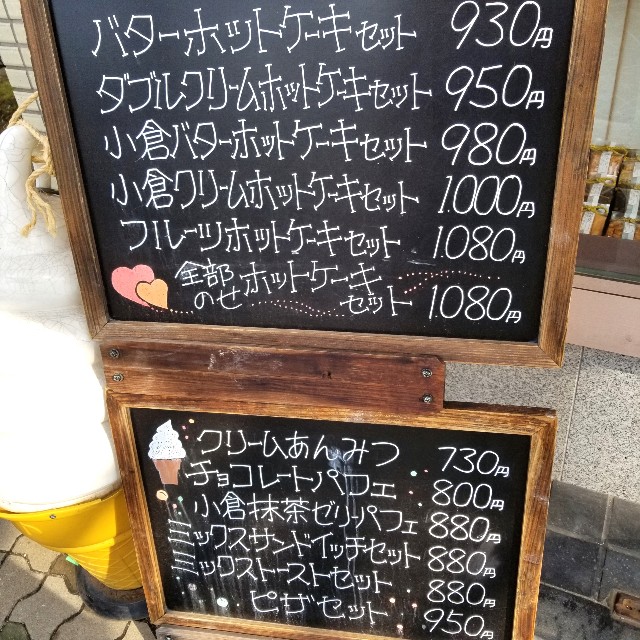 バターホットケーキセット 930円
ダブルクリームホットケーキセット 950円
小倉バターホットケーキセット 980円
小倉クリームホットケーキセット 1.000円
フルーツホットケーキセット 1.080円
全部のせホットケーキセット 1.080円
クリームあんみつ 730円
チョコレートパフェ 800円
小倉抹茶ゼリーパフェ 880円
ミックスサンドイッチセット 880円
ミックストーストセット 880円
ピザセット 950円